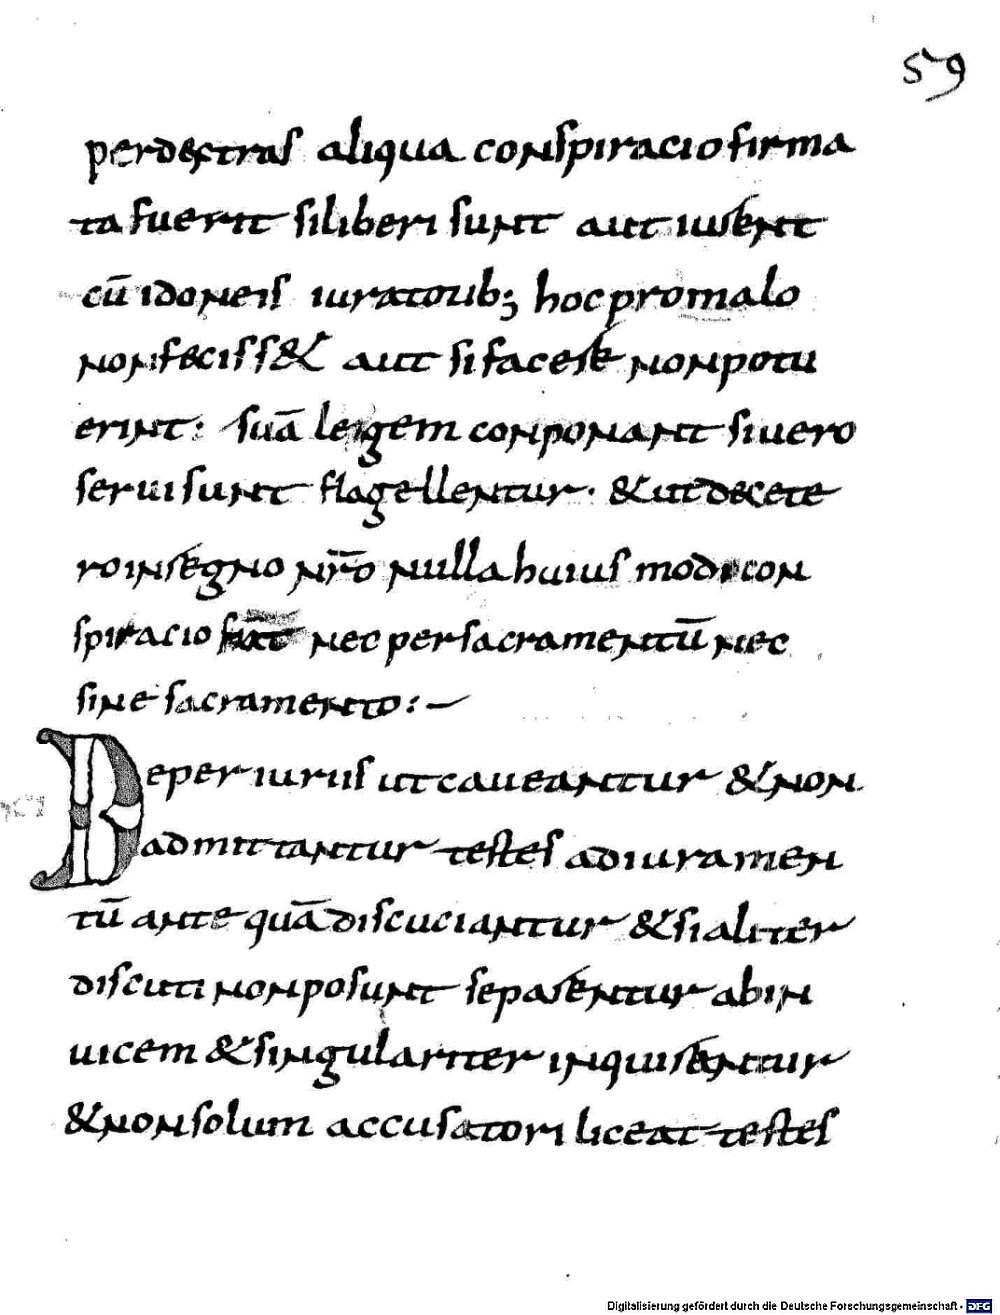 59
perdextras aliqua conspiracio firma
ta fuerit si liberi sunt aut iurent
cū idoneis iuratorib; hoc pro malo
non feciss& aut si facere non potu
erint: suā leigem conponant si uero
serui sunt flagellentur· & ut decete
ro in regno nr̄o nulla huius modi con
spiracio fiat nec per sacramentū nec
sine sacramento:—
De periuriis ut caueantur & non
admittantur testes ad iuramen
tū ante quā discuciantur & si aliter
discuti non posunt separentur ab in
uicem & singulariter inquirentur
& non solum accusatori liceat testes
Digitalisierung gefördert durch die Deutsche Forschungsgemeinschaft - DFG